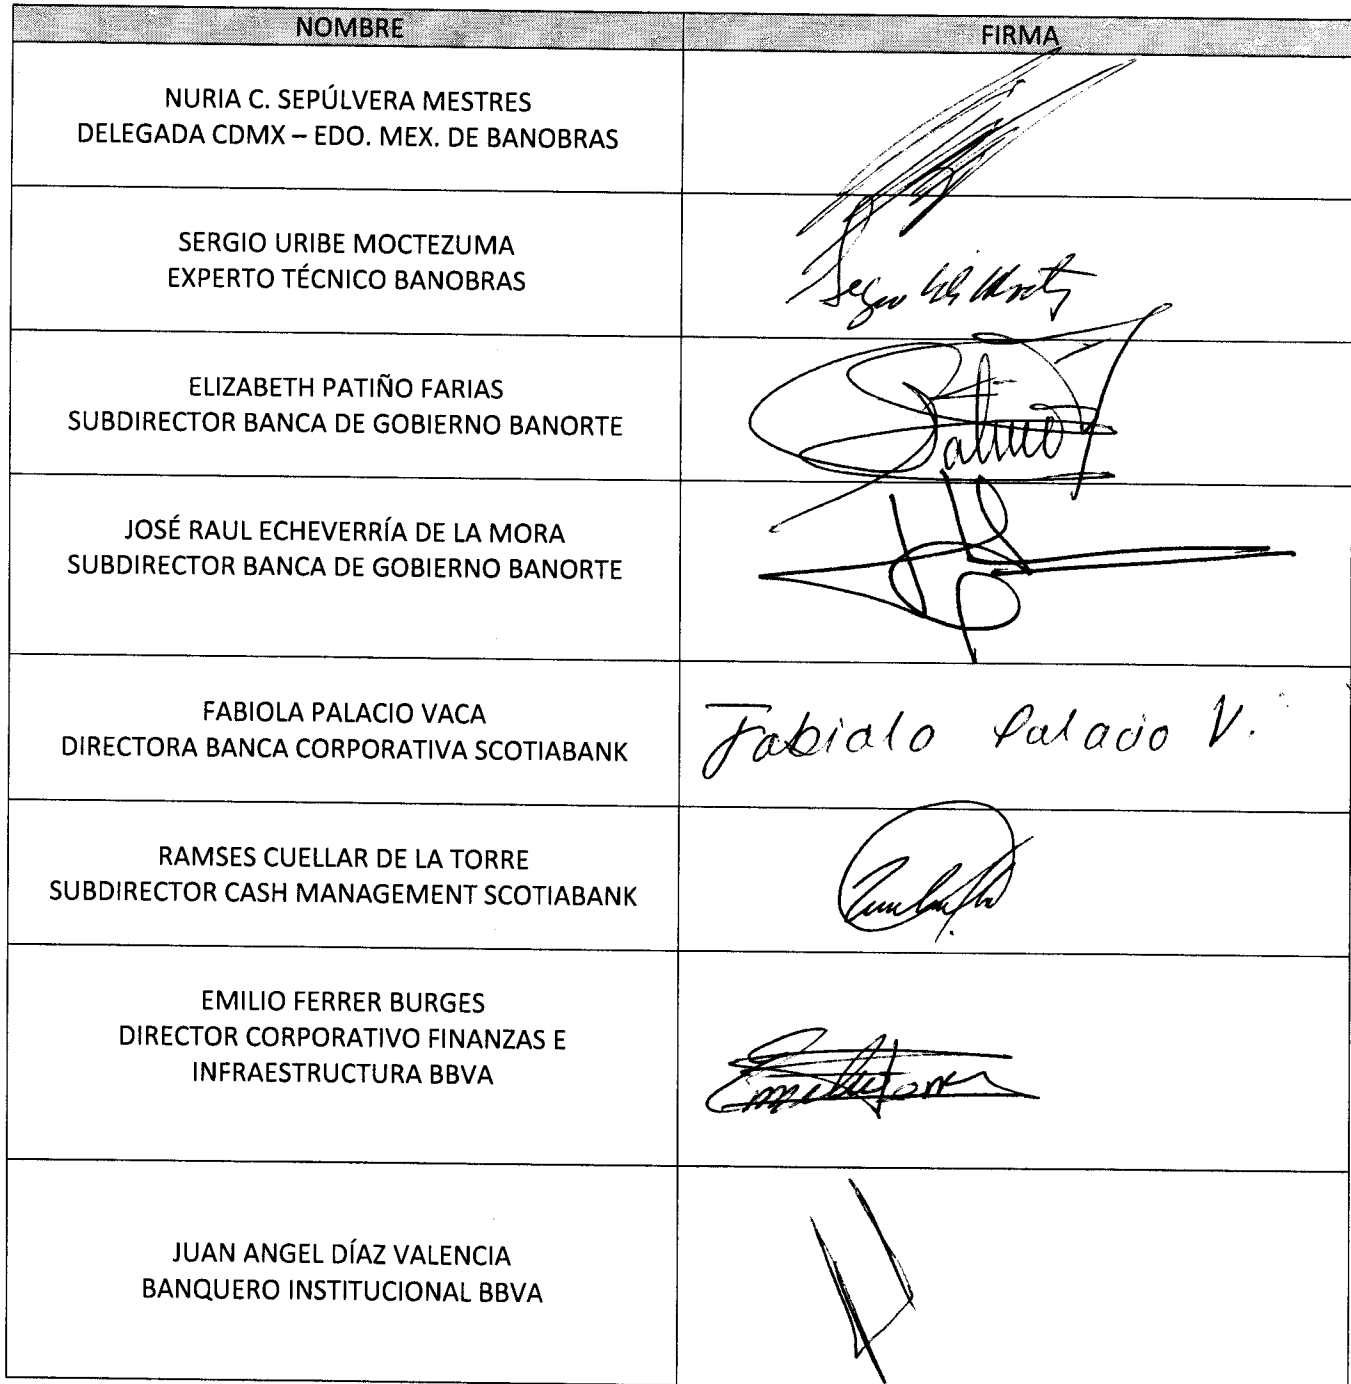 NOMBRE
FIRMA
NURIA C. SEPÚLVERA MESTRES
DELEGADA CDMX – EDO. MEX. DE BANOBRAS
SERGIO URIBE MOCTEZUMA
EXPERTO TÉCNICO BANOBRAS
Sergio
ELIZABETH PATIÑO FARIAS
SUBDIRECTOR BANCA DE GOBIERNO BANORTE
JOSÉ RAUL ECHEVERRÍA DE LA MORA
SUBDIRECTOR BANCA DE GOBIERNO BANORTE
FABIOLA PALACIO VACA
DIRECTORA BANCA CORPORATIVA SCOTIABANK
Fabiola Palacio V.
RAMSES CUELLAR DE LA TORRE
SUBDIRECTOR CASH MANAGEMENT SCOTIABANK
EMILIO FERRER BURGES
DIRECTOR CORPORATIVO FINANZAS E
INFRAESTRUCTURA BBVA
JUAN ANGEL DÍAZ VALENCIA
BANQUERO INSTITUCIONAL BBVA